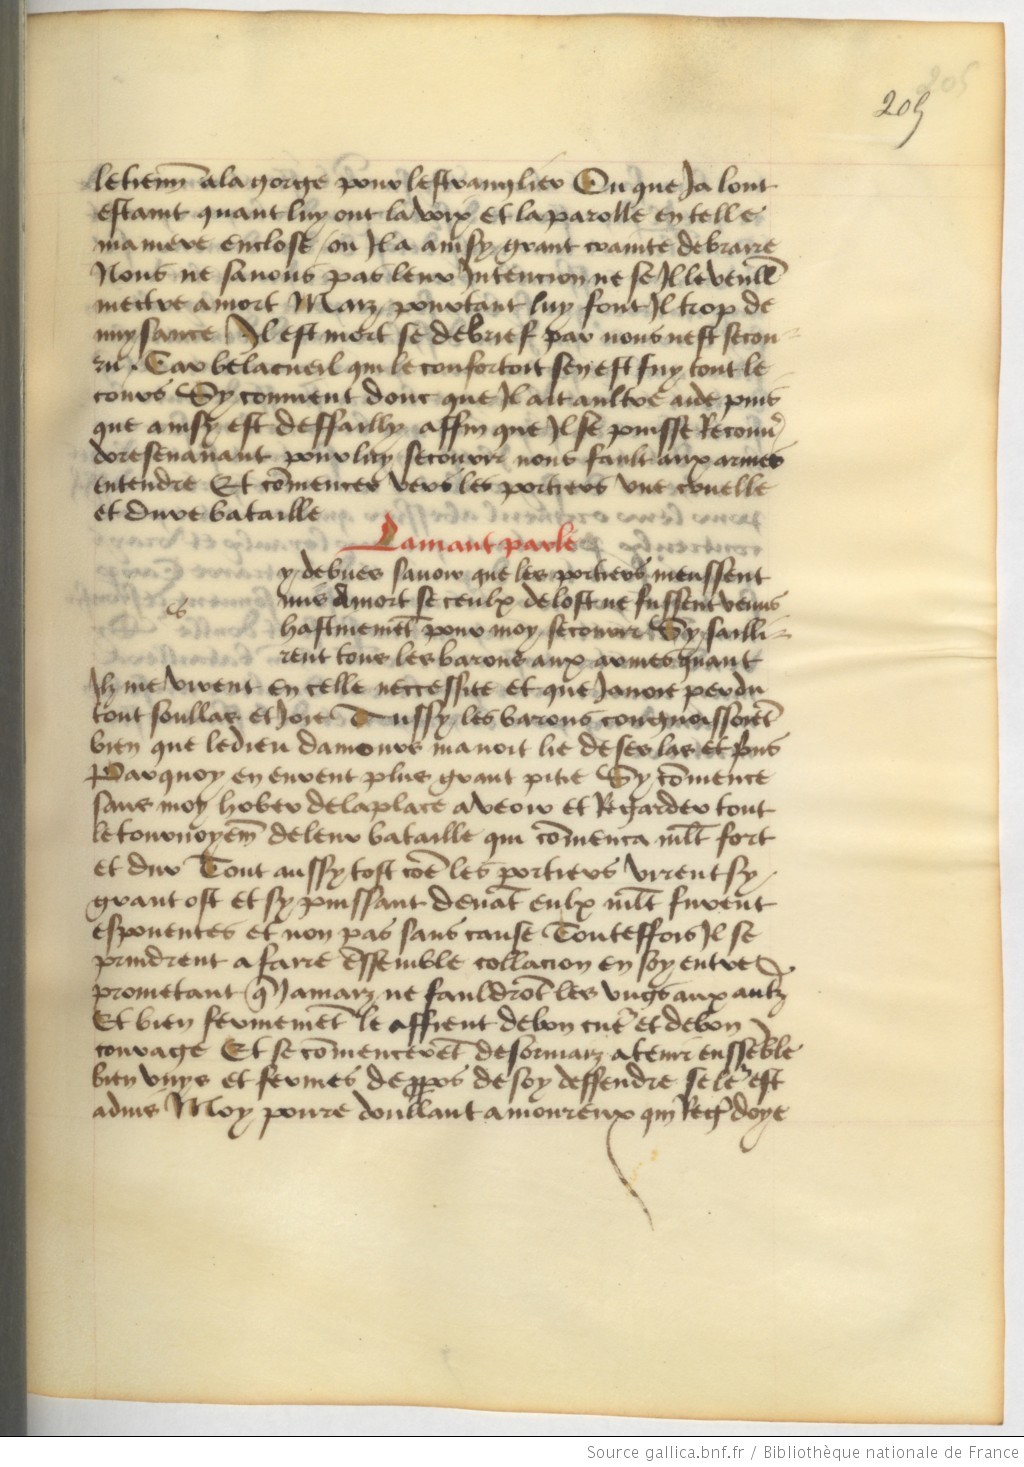 205
letienn̄ ala gorge pour lestranglier Ou que Ja lont
estaint quant luy ont la voix et la parolle en telle
maniere enclose ou Il a ainsy grant crainte de braire
Nous ne savons pas leur Intencion ne se Il le veull̄
mectre a mort Maiz pourtant luy font Il trop de
nuysance Il est mort se de brief par nous nest secou
ru . Car belacueil qui le confortoit sen est fuy tout le
cours Sy convient donc que Il ait aultre aide puis
que ainsy est deffailly affin que Il se puisse Recouvr̄
doresenavant pour luy secourir nous fault aux armes
entendre Et cōmencer vers les portiers une cruelle
et dure bataille
Lamant parle
y debves savoir que les portiers meussent
s
mis a mort se ceulx de lost ne fussent venus
hastivemēt pour moy secourir Sy sailli
rent tous les barons aux armes quant
Ilz me virent en celle neccessite et que Javoie perdu
tout soullas et Joie Aussy les barons congnoissoiēt
bien que le dieu damours mavoit lie de ses las et prins
Parquoy en eurent plus grant pitie Sy cōmence
sans moy hober de la place a veoir et Regarder tout
le tournoyem̄ de leur bataille qui cōmenca ml̄t fort
et dur Tout aussy tost cōe les portiers virent sy
grant ost et sy puissant devāt eulx ml̄t furent
espouentes et non pas sans cause Touteffois Il se
prindrent a faire ensemble collacion en soy entre
prometant q̄ Jamaiz ne fauldrōt les ungs aux autz̄
Et bien fermemēt le affient de bon cue᷑ et de bon
courage Et se cōmencerēt desormaiz a tenir enssēble
bien unys et fermes de ꝓpos de soy deffendre se le᷑ est
advis Moy povre doullant amoureux qui Reg᷑doye